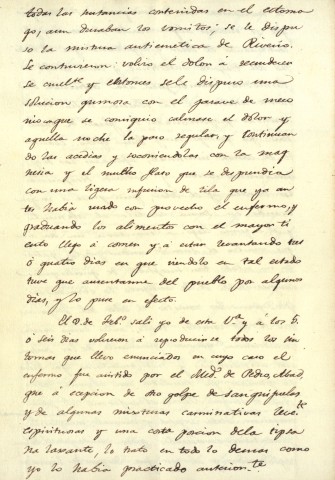 todas las sustancias contenidas en el estoma
go, aun duraban los vomitos; se le dispu
so la mistura antiemetica de Riverio.
Se contuvieron: volvio el dolor à recrudecer
se cuel.te y entonces se le dispuso una
solucion gumosa con el jarave de meco
nio con que se consiguio calmase el dolor y
aquella noche la paso regular, y continuan
do las acedias y socorriendolas con la mag
nesia y el mucho flato que se desprendia
con una ligera infusion de tila que ya an
tes habia usado con provecho el enfermo, y
graduando los alimentos con el mayor ti
ento llegó á comer y á estar levantando tres
ó quatro dias en que viendolo en tal estado
tuve que ausentarme del pueblo por algunos
dias, y lo puse en efecto.
El de Feb.o sali yo de esta V.a y á los 5.
ó seis dias volvieron á reproducirse todos los sin
tomas que llevo enunciados en cuyo caso el
enfermo fue asistido por el Med. de Pedro Abad,
que á escepcion de otro golpe de sanguijuelas
y de algunas misturas carminativas
espirituosas y una corta porcion de la
laxante, lo trató en todo lo demas como
yo lo habia practicado anterior.te